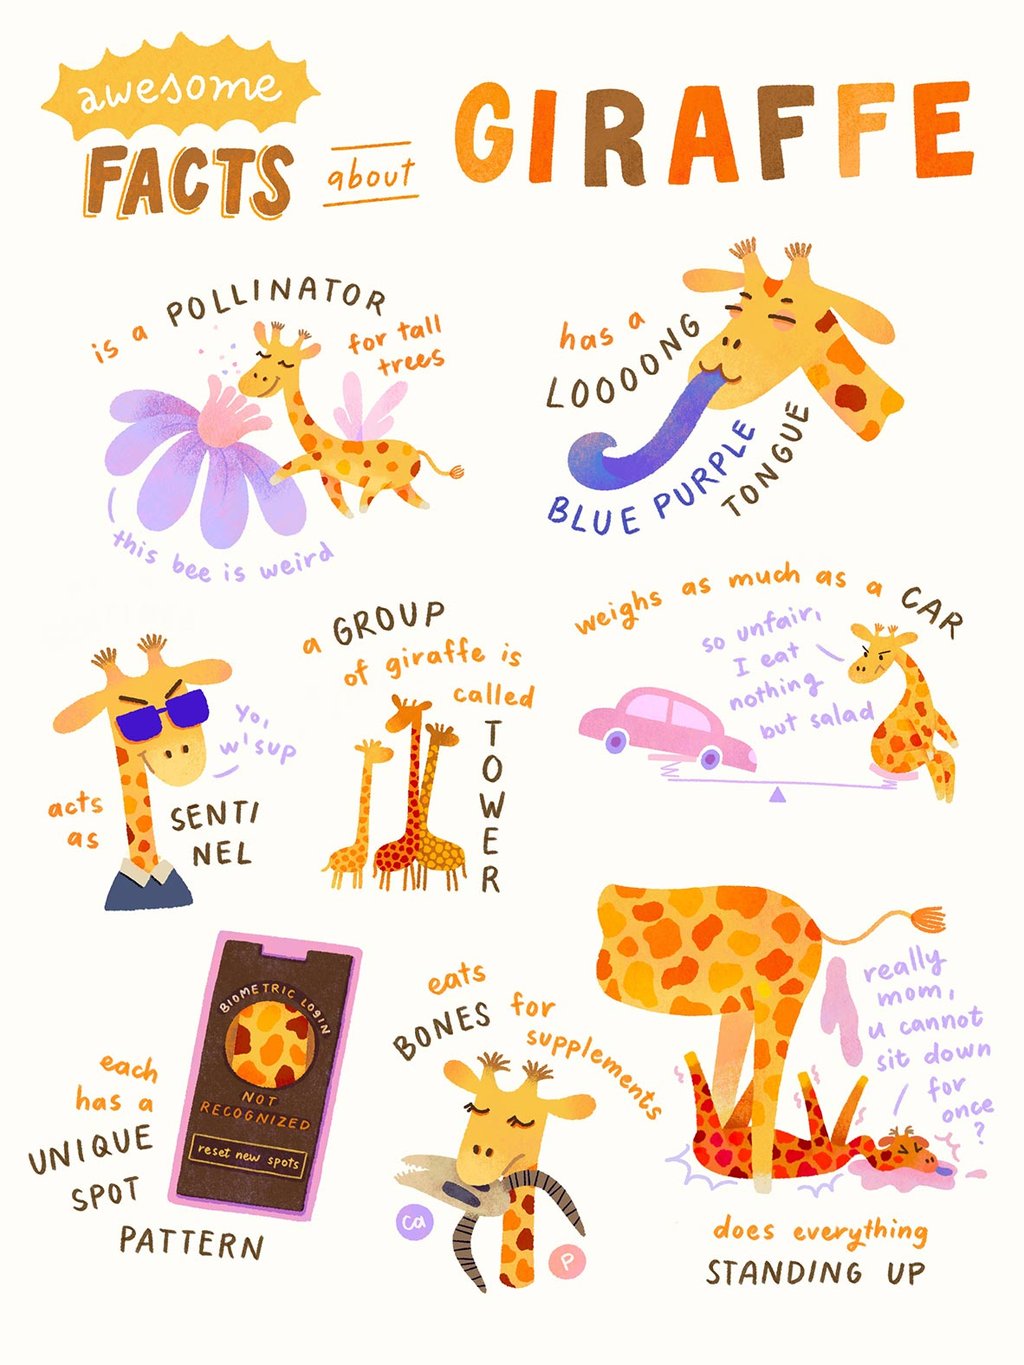 awesome
FACTS
about
GIRAFFE
is a POLLINATOR
for tall
trees
this bee is weird
has a
LOOOONG
BLUE PURPLE
TONGUE
acts
as
SENTI
NEL
yo,
w'sup
a GROUP
of giraffe is
called
TOWER
weighs as much as a CAR
so unfair,
I eat
nothing
but salad
each
has a
UNIQUE
SPOT
PATTERN
BIOMETRIC LOGIN
NOT
RECOGNIZED
reset new spots
eats
BONES for
supplements
Ca
P
really
mom,
u cannot
sit down
for
once
?
does everything
STANDING UP